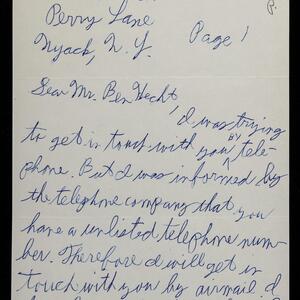 Perry Lane
Nyack, N.Y.
Page 1
P.
Dear Mr. Ben Hecht,
I was trying
to get in touch with you BY tele-
phone. But I was informed by
the telephone company that you
have a unlisted telephone num-
ber. Therefore I will get in
touch with you by airmail. I